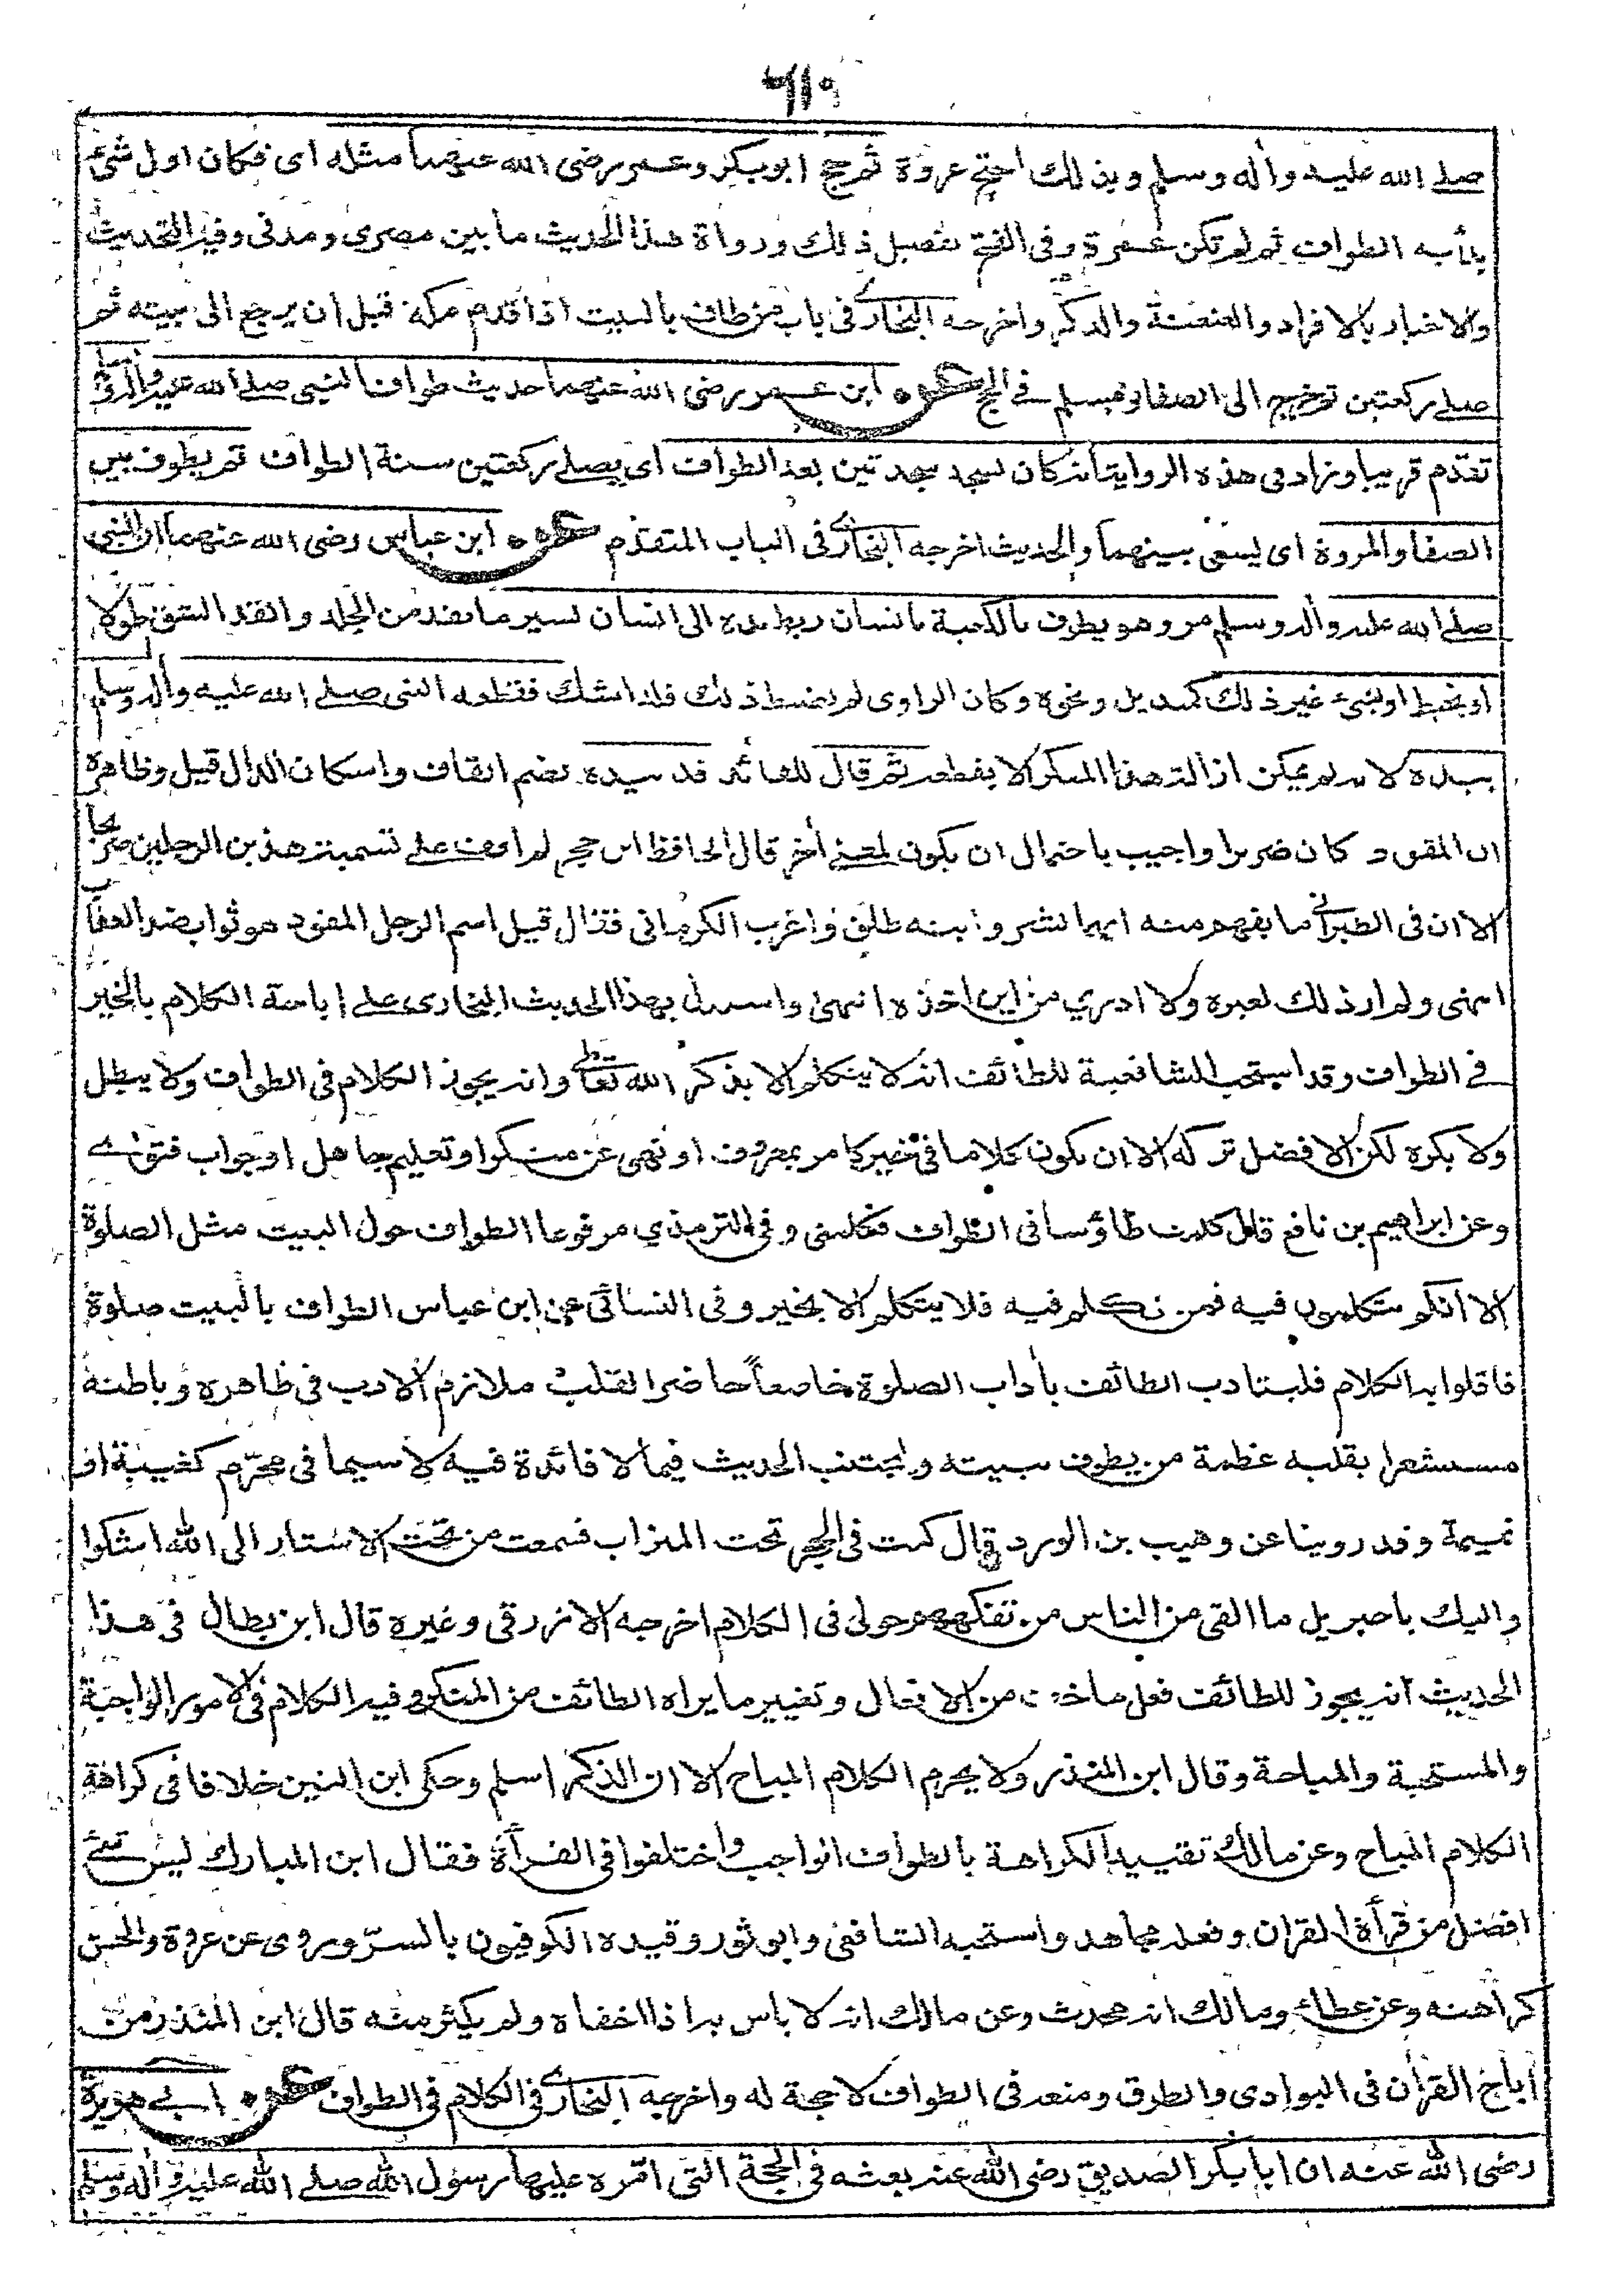 ٦١٩
صلے الله عليه وأله وسلم وبذلك احتج عروة ثم حج ابوبكر وعمر رضى الله عنهما مثله اى فكان اول شئ
بدأ به الطواف ثم لم تكن عمرة وفى الفتح تفصيل ذلك ورواة هذا الحديث ما بين مصرى ومدنى وفيه التحديث
والاخبار بالافراد والعنعنة والذكر واخرجه البخارى فى باب من طاف بالبيت اذا قدم مكة قبل ان يرجع الى بيته ثم
صلے ركعتين ثم خرج الى الصفا ومسلم فے الحج عن ابن عمر رضى الله عنهما حديث طواف النبى صلے الله عليه وأله وسلم
تقدم قريبا وزاد فى هذه الرواية انه كان يسجد سجدتين بعد الطواف اى يصلے ركعتين سنة الطواف ثم يطوف بين
الصفا والمروة اى يسعى بينهما والحديث اخرجه البخارى فى الباب المتقدم عن ابن عباس رضى الله عنهما ان النبى
صلے الله عليه وأله وسلم مر وهو يطوف بالكعبة بانسان ربط يده الى انسان بسير ما يقد من الجلد والقد الشق طولا
او بخيط او بشئ غير ذلك كمنديل ونحوه وكان الراوى لم يضبط ذلك فلذا شك فقطعه النبى صلے الله عليه وأله وسلم
بيده لانه لم يمكن ازالة هذا المنكر الا بقطعه ثم قال للقائد قد بيده بضم القاف واسكان الدال قيل وظاهره
ان المقود كان ضريرا واجيب باحتمال ان يكون لمعنے أخر قال الحافظ ابن حجر لم اقف علے تسمية هذين الرجلين صريحا
الا ان فى الطبرانى ما يفهم منه انهما بشر وابنه طلق واغرب الكرمانى فقال قيل اسم الرجل المقود هو ثواب ضد العقاب
انتهى ولم ار ذلك لغيره ولا ادري من اين اخذه انتهى واستدل بهذا الحديث البخارى علے اباحة الكلام بالخير
فے الطواف وقد استحب الشافعية للطائف انه لا يتكلم الا بذكر الله تعالى وانه يجوز الكلام فى الطواف ولا يبطل
ولا يكره لكن الافضل تركه الا ان يكون كلاما فى خير كامر بمعروف او نهى عن منكر او تعليم جاهل او جواب فتوى
وعن ابراهيم بن نافع قال كلمت طاؤسا فى الطواف فكلمنى وفى الترمذي مرفوعا الطواف حول البيت مثل الصلوة
الا انكم تتكلمون فيه فمن تكلم فيه فلا يتكلم الا بخير وفى النسائى عن ابن عباس الطواف بالبيت صلوة
فاقلوا به الكلام فليتادب الطائف بأداب الصلوة خاضعاً حاضر القلب ملازم الادب فى ظاهره وباطنه
مستشعرا بقلبه عظمة من يطوف ببيته وليجتنب الحديث فيما لا فائدة فيه لا سيما فى محرّم كغيبة او
نميمة وقد روينا عن وهيب بن الورد قال كنت فى الحجر تحت الميزاب فسمعت من تحت الاستار الى الله اشكوا
واليك يا جبريل ما القى من الناس من تفكههم حولى فى الكلام اخرجه الازرقى وغيره قال ابن بطال فى هذا
الحديث انه يجوز للطائف فعل ما خف من الافعال وتغيير ما يراه الطائف من المنكر وفيه الكلام فى الامور الواجبة
والمستحبة والمباحة وقال ابن المنذر ولا يحرم الكلام المباح الا ان الذكر اسلم وحكى ابن التين خلافا فى كراهة
الكلام المباح وعن مالك تقييد الكراهة بالطواف الواجب واختلفوا فى القرأة فقال ابن المبارك ليس شئ
افضل من قرأة القران وفعله مجاهد واستحبه الشافعى وابو ثور وقيده الكوفيون بالسرّ وروى عن عروة والحسن
كراهته وعن عطاء ومالك انه محدث وعن مالك انه لا باس به اذا اخفاه ولم يكثر منه قال ابن المنذر من
اباح القران فى البوادى والطرق ومنعه فى الطواف لا حجة له واخرجه البخارى فى الكلام فى الطواف عن ابے هريرة
رضى الله عنه ان ابا بكر الصديق رضى الله عنه بعثه فى الحجة التى امّره عليها رسول الله صلے الله عليه وأله وسلم